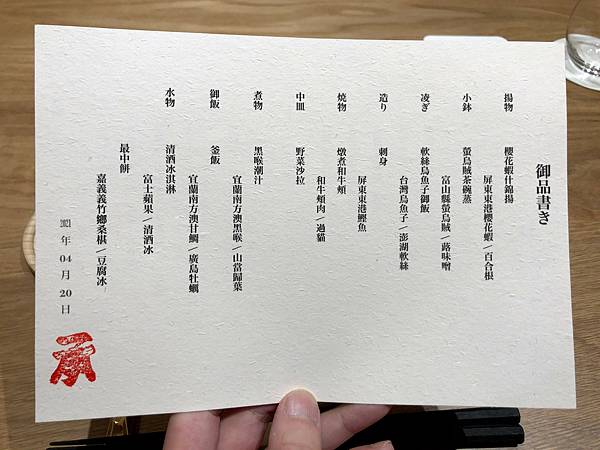 御品書き
揚物 櫻花蝦什錦揚
屏東東港櫻花蝦/百合根
小鉢 螢烏賊茶碗蒸
富山縣螢烏賊/蕗味噌
凌ぎ 軟絲烏魚子御飯
台灣烏魚子/澎湖軟絲
造り 刺身
屏東東港鰹魚
燒物 燉煮和牛頰
和牛頰肉/過貓
中皿 野菜沙拉
煮物 黑喉潮汁
宜蘭南方澳黑喉/山當歸葉
御飯 釜飯
宜蘭南方澳甘鯛/廣島牡蠣
水物 清酒冰淇淋
富士蘋果/清酒冰
最中餅
嘉義義竹鄉桑椹/豆腐冰
2021年04月20日
承